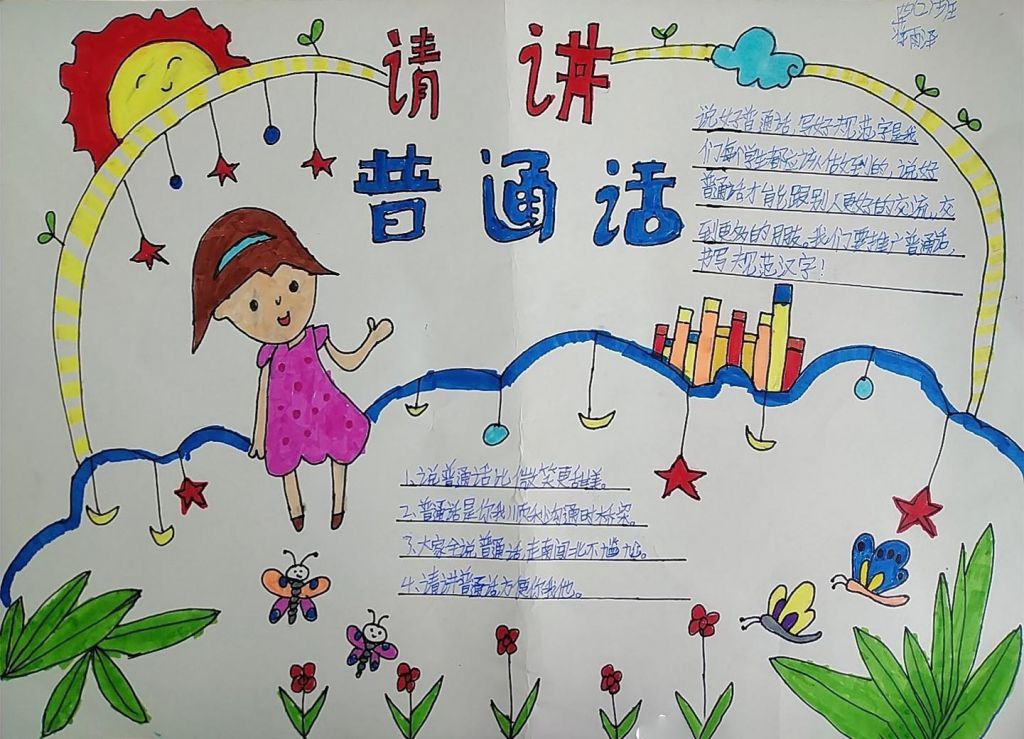 请讲
普通话
四(2)班
雨泽
说好普通话,写好规范字是我
们每个学生都应该从估好到的,说好
普通话才能跟别人更好的交流,交
到更多的朋友。我们要推广普通话,
书写规范汉字!
1、说普通话比微笑更甜美。
2、普通话是你我顺利沟通的桥梁。
3、大家全说普通话,走南闯北不尴尬。
4、请讲普通话方便你我他。